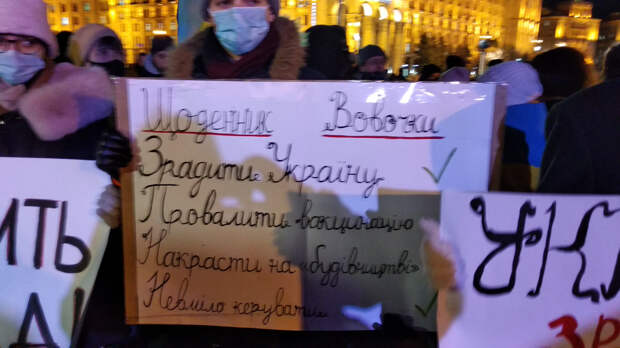 Щоденник Вовочки
Зрадити Україну
Провалити вакцинацію
Накрасти на «будівництві»
Невміло керувати
ИТЬ